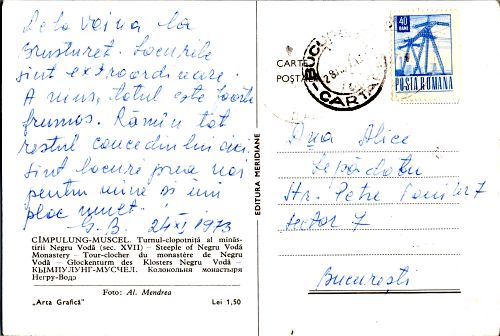 De la Voina la
Brusturet. Locurile
sînt extraordinare.
A nins, totul este foarte
frumos. Rămîn tot
restul concediului aici.
Sînt locuri prea noi
pentru mine și îmi
plac mult!
G.B. 24 XI 1973
CÎMPULUNG-MUSCEL. Turnul-clopotniță al mînăs-
tirii Negru Vodă (sec. XVII) – Steeple of Negru Vodă
Monastery – Tour-clocher du monastère de Negru
Vodă – Glockenturm des Klosters Negru Vodă –
КЫМПУЛУНГ-МУСЧЕЛ. Колокольня монастыря
Негру-Водэ
Foto: Al. Mendrea
„Arta Grafică” Lei 1,50
EDITURA MERIDIANE
CARTE
POȘTA
BUCUR
CARTA
40
BANI
POSTA ROMANA
Ana Alice
Lepădatu
Str. Petre 7
sector 7
București